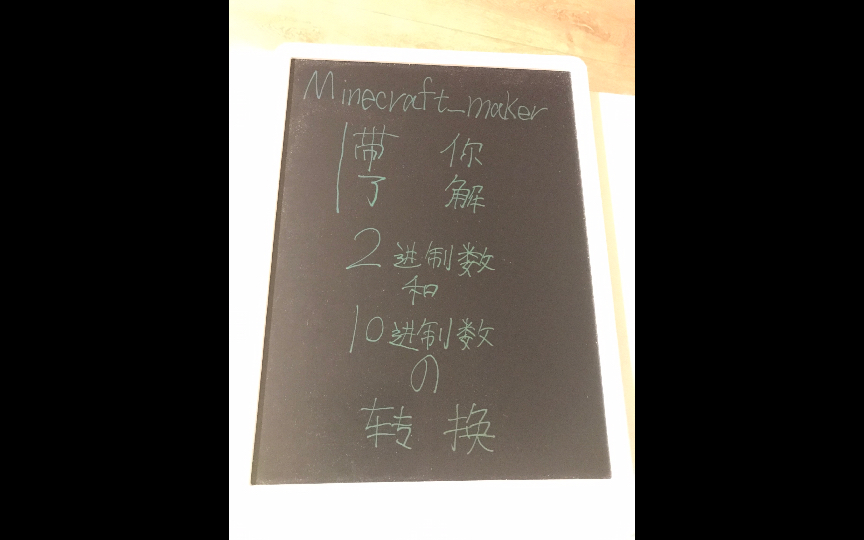 Minecraft_maker
带你
了解
2进制数
和
10进制数
の
转换